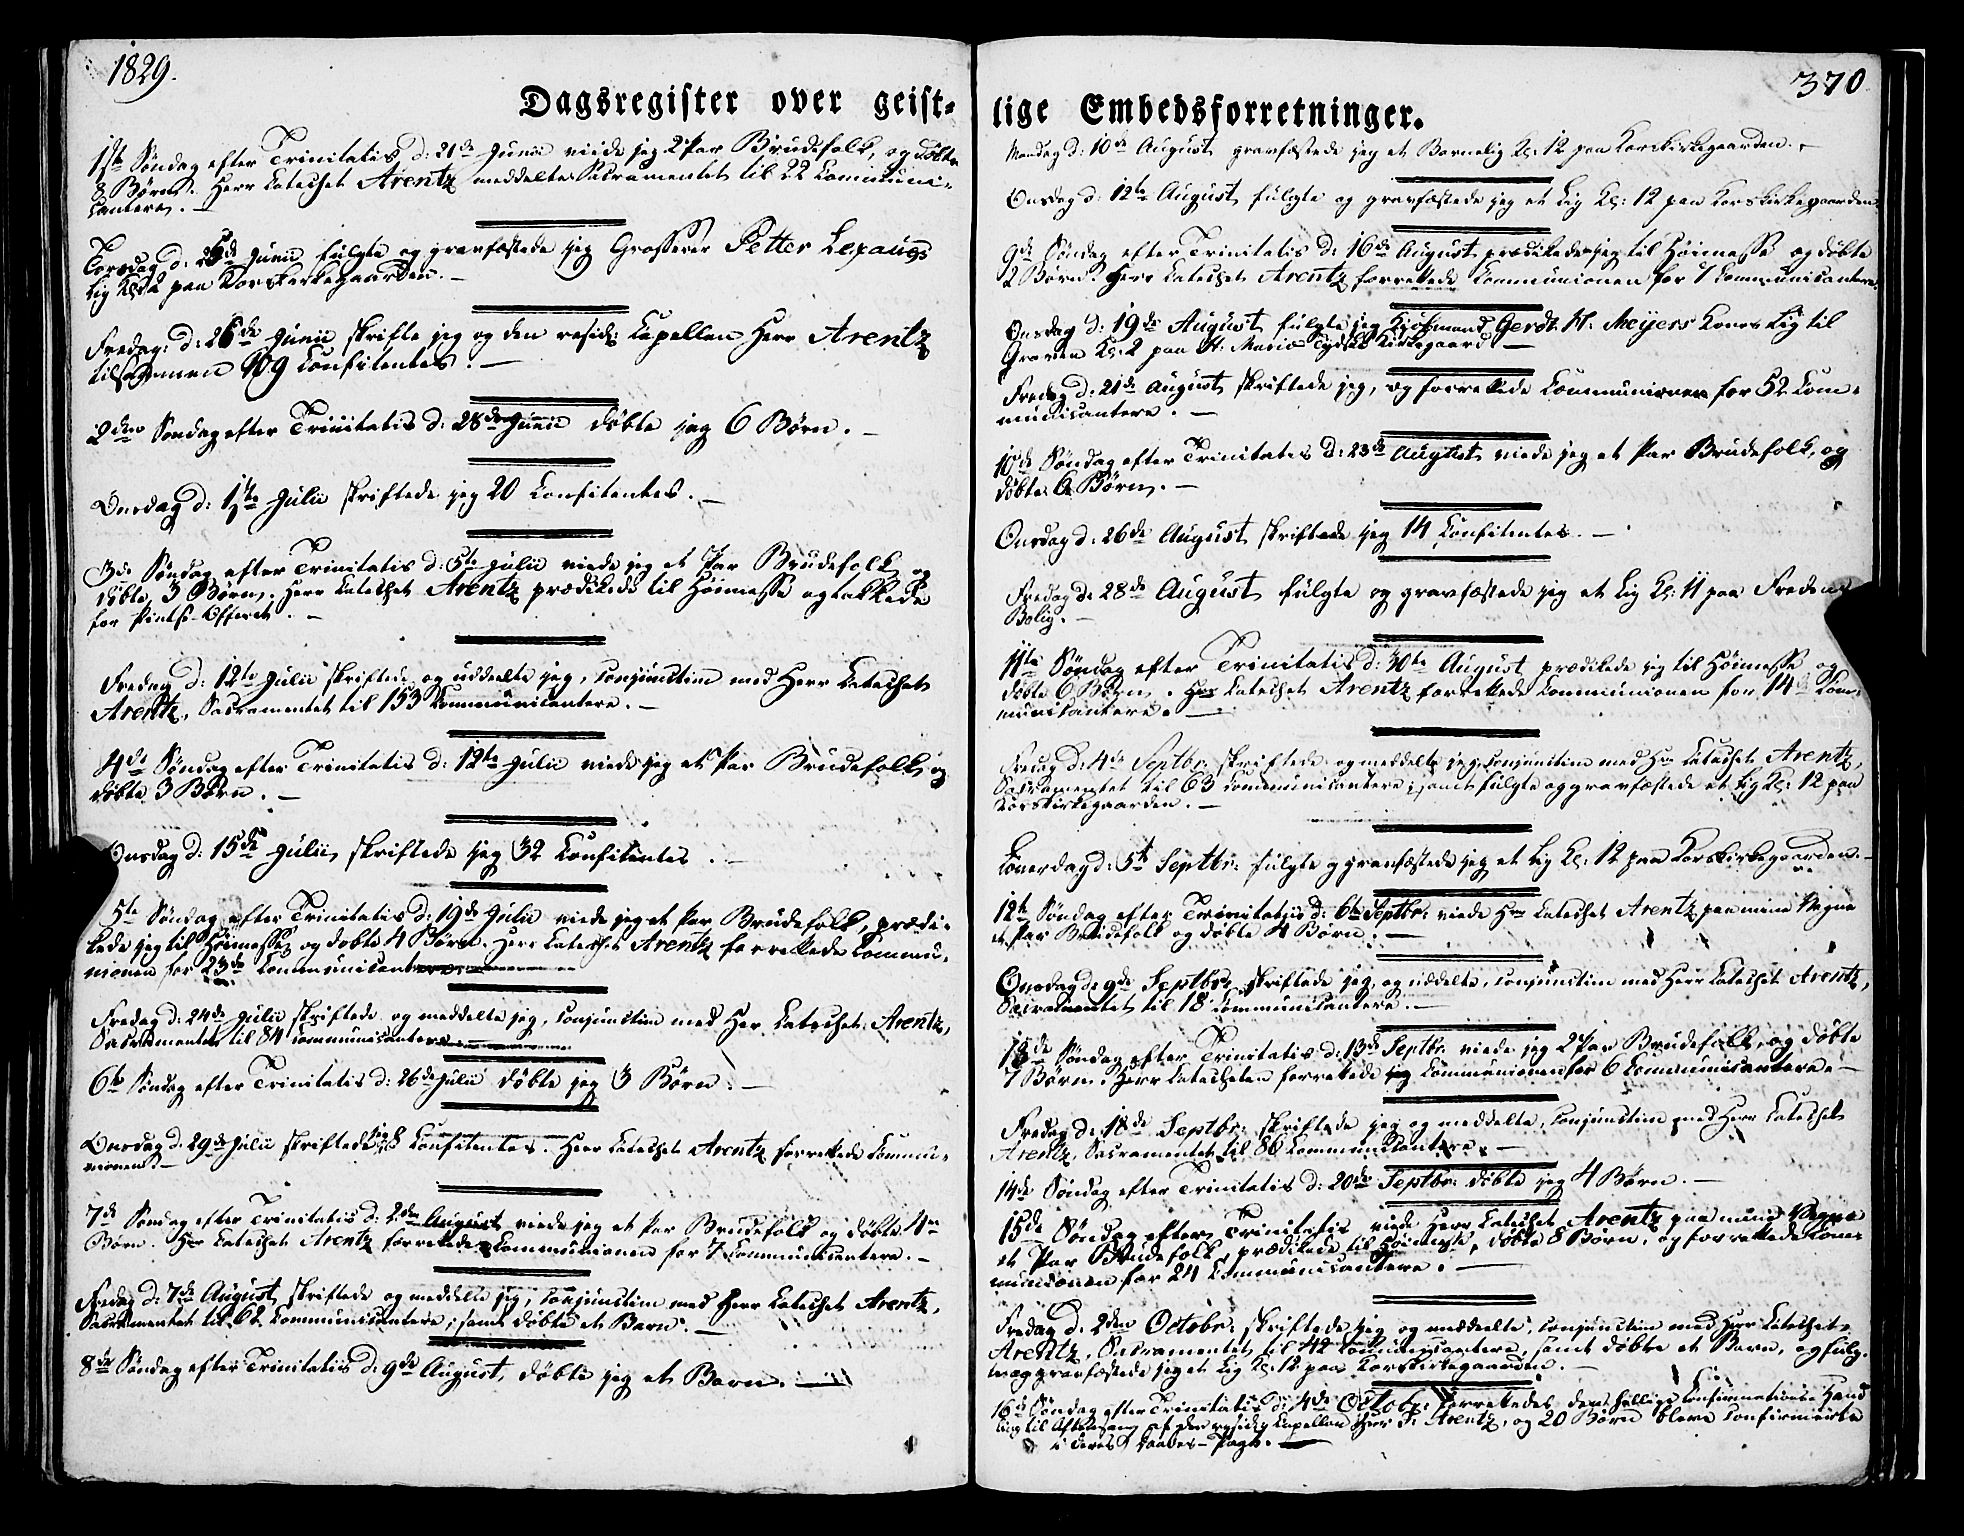 1829.
Dagsregister over geist-
1ste Søndag efter Trinitatis d: 21de Junii viede jeg 2 Par Brudefolk, og døbte
8 Børn. Herr Catechet Arentz meddelte Sacramentet til 22 Communi-
cantere. —
Torsdag d: 25de Junii fulgte og gravfæstede jeg Grosserer Petter
Lig Kl: 2 paa Korskirkegaarden. —
Fredag: d: 26de Junii skrifte jeg og den resid: Capellan Herr Arentz
tilsammen 109 Confitentes. —
2den Søndag efter Trinitatis d: 28de Junii døbte jeg 6 Børn. —
Onsdag d: 1ste Julii skriftede jeg 20 Confitentes. —
3de Søndag efter Trinitatis d: 5te Julii viede jeg et Par Brudefolk og
døbte 3 Børn. Herr Catechet Arentz prædikede til Høimesse og takkede
for Pintse-Offeret. —
Fredag d: 12te Julii skriftede og uddeelte jeg, conjunctim med Herr Catechet
Arentz, Sacramentet til 153 Communicantere. —
4de Søndag efter Trinitatis d: 12te Julii viede jeg et Par Brudefolk og
døbte 3 Børn. —
Onsdag d: 15de Julii skriftede jeg 32 Confitentes. —
5te Søndag efter Trinitatis d: 19de Julii viede jeg et Par Brudefolk, prædi-
kede jeg til Høimesse og dobte 4 Børn. Herr Catechet Arentz forrettede Commu-
nionen for 23de Communicantere.
Fredag d: 24de Julii skriftede og meddelte jeg, conjunctim med Her Catechet Arentz,
Sacramentet til 84 Communicantere. —
6te Søndag efter Trinitatis d: 26de Julii døbte jeg 3 Børn. —
Onsdag d: 29de Julii skriftede jeg Confitentes. Herr Catechet Arentz forrettede Commu-
nionen. —
7de Søndag efter Trinitatis d: 2den August viede jeg et Par Brudefolk og døbte 4re
Børn. Herr Catechet Arentz forrettede Communionen for 7 Communicantere. —
Fredag d: 7de August skriftede og meddelte jeg, conjunctim med Herr Catechet Arentz,
Sacramentet til 62 Communicantere; samt døbte et Barn. —
8de Søndag efter Trinitatis d: 9de August, døbte jeg et Barn. —
370
lige Embedsforretninger.
Mandag d: 10de August gravfæstede jeg et Barnelig Kl: 12 paa Korskirkegaarden. —
Onsdag d: 12te August fulgte og gravfæstede jeg et Lig Kl: 12 paa Korskirkegaarden.
9de Søndag efter Trinitatis d: 16de August prædikede jeg til Høimesse og døbte
2 Børn. Herr Catechet Arentz forrettede Communionen for 7 Communicantere.
Onsdag d: 19de August fulgte jeg Kjøbmand Gerdt H: Meyers Kones Lig til
Graven Kl: 2 paa St: Mariæ Tydske Kirkegaard. —
Fredag d: 21de August skriftede jeg, og forrettede Communionen for 52 Com-
municantere. —
10de Søndag efter Trinitatis d: 23de August viede jeg et Par Brudefolk, og
døbte 6 Børn. —
Onsdag d: 26de August skriftede jeg 14 Confitentes. —
Fredag d: 28de August fulgte og gravfæstede jeg et Lig Kl: 11 paa Fredens
Bolig. —
11te Søndag efter Trinitatis d: 30te August prædikede jeg til Høimesse og
døbte 6 Børn. Herr Catechet Arentz forrettede Communionen for 14 Com-
municantere. —
Fredag d: 4de Septbr: skriftede og meddelte jeg, conjunctim med Hr Catechet Arentz,
Sacramentet til 63 Communicantere; samt fulgte og gravfæstede et Lig Kl: 12 paa
Korskirkegaarden. —
Løverdag d: 5te Septbr: fulgte og gravfæstede jeg et Lig Kl: 12 paa Korskirkegaarden. —
12te Søndag efter Trinitatis d: 6te Septbr: viede Herr Catechet Arentz paa mine Vegne
et Par Brudefolk og døbte 4 Børn. —
Onsdag d: 9de Septbr: skriftede jeg, og uddelte, conjunctim med Herr Catechet Arentz,
Sacramentet til 18 Communicantere. —
13de Søndag efter Trinitatis d: 13de Septbr: viede jeg 2 Par Brudefolk, og døbte
7 Børn. Herr Catecheten forrettede jeg Communionen for 6 Communicantere. —
Fredag d: 18de Septbr: skriftede jeg og meddelte, conjunctim med Herr Catechet
Arentz, Sacramentet til 86 Communicantere. —
14de Søndag efter Trinitatis d: 20de Septbr: døbte jeg 4 Børn. —
15de Søndag efter Trinitatis viede Herr Catechet Arentz paa mine Vegne
et Par Brudefolk, prædikede til Høimesse, døbte 8 Børn, og forrettede Com-
munionen for 24 Communicantere. —
Fredag d. 2den Octobr: skriftede jeg og meddelte, conjunctim med Herr Catechet
Arentz, Sacramentet til 42 Communicantere, samt døbte et Barn, og fulg-
te og gravfæstede jeg et Lig Kl: 12 paa Korskirkegaarden. —
16de Søndag efter Trinitatis d: 4de Octobr: forrettedes den hellige Confirmations Hand-
ling til Aftensang af den residr: Capellan Herr F: Arentz, og 20 Børn bleve confirmerte
i deres Daabes-Pagt. —